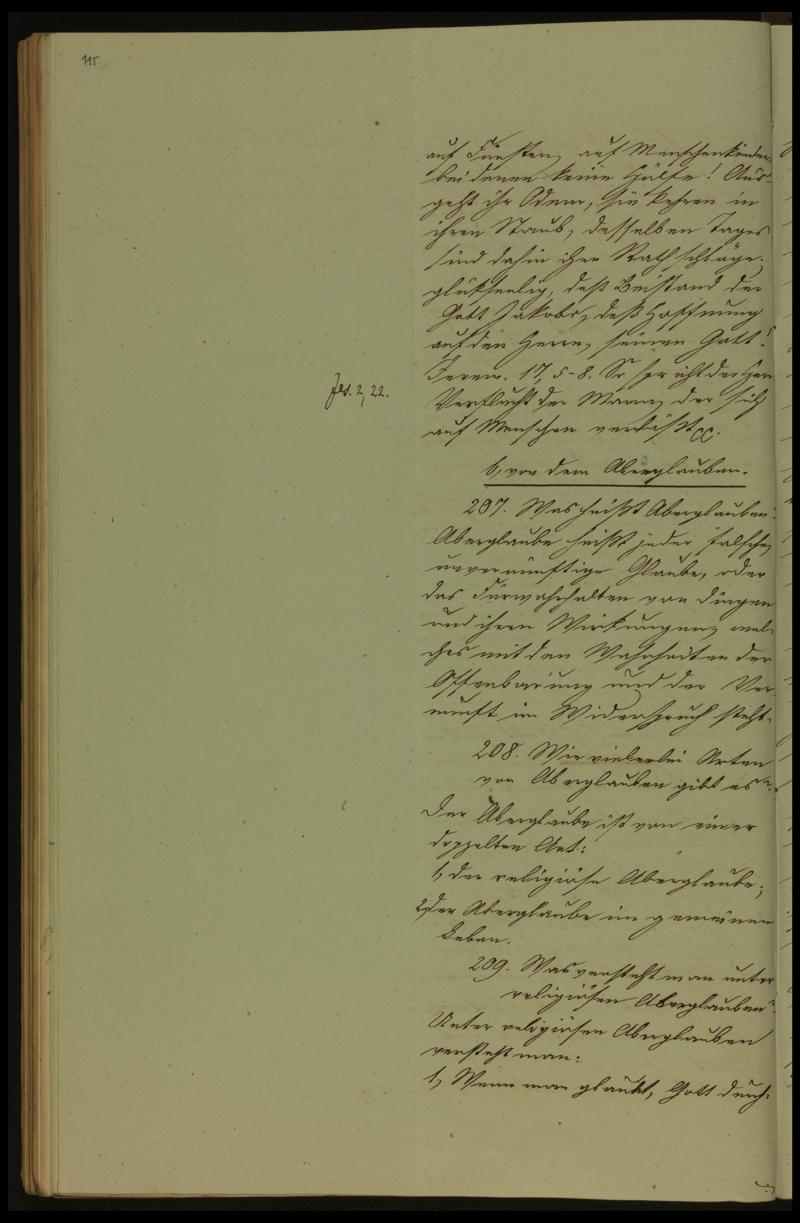 115
auf Fürsten, auf Menschenkinder,
bei denen keine Hülfe! Aus-
geht ihr Odem, sie kehren in
ihren Staub, desselben Tages
sind dahin ihre Rathschläge.
glükseelig, deß Beistand der
Gott Jakobs, deß Hoffnung
auf den Herrn, seinen Gott.
Jerem. 17, 5-8. So spricht der Herr
Jes. 2, 22.
Verflucht der Mann, der sich
auf Menschen verläßt
b, von dem Aberglauben.
207. Was heißt Aberglauben?
Aberglaube heißt jeder falsche,
unvernünftige Glaube, oder
das Fürwahrhalten von Dingen
und ihren Wirkungen, wel-
ches mit den Wahrheiten der
Offenbarung und der Ver-
nunft im Widerspruch steht.
208. Wie vielerlei Arten
von Aberglauben gibt es?
Der Aberglaube ist von einer
doppelten Art:
1, der religiöse Aberglaube;
2, der Aberglaube im gemeinen
Leben.
209. Was versteht man unter
religiösen Aberglauben?
Unter religiösen Aberglauben
versteht man:
1, Wenn man glaubt, Gott durch